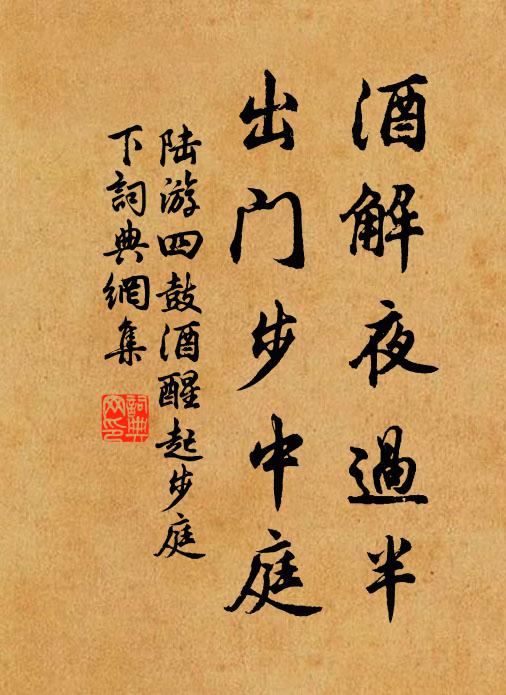 酒解夜過半
出门步中庭
陆游四鼓酒醒起步庭
下詞典網集
詞典
网印